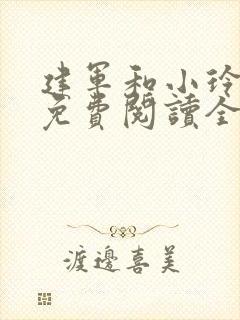 建軍和小玲
免費閱讀全
渡邊喜美